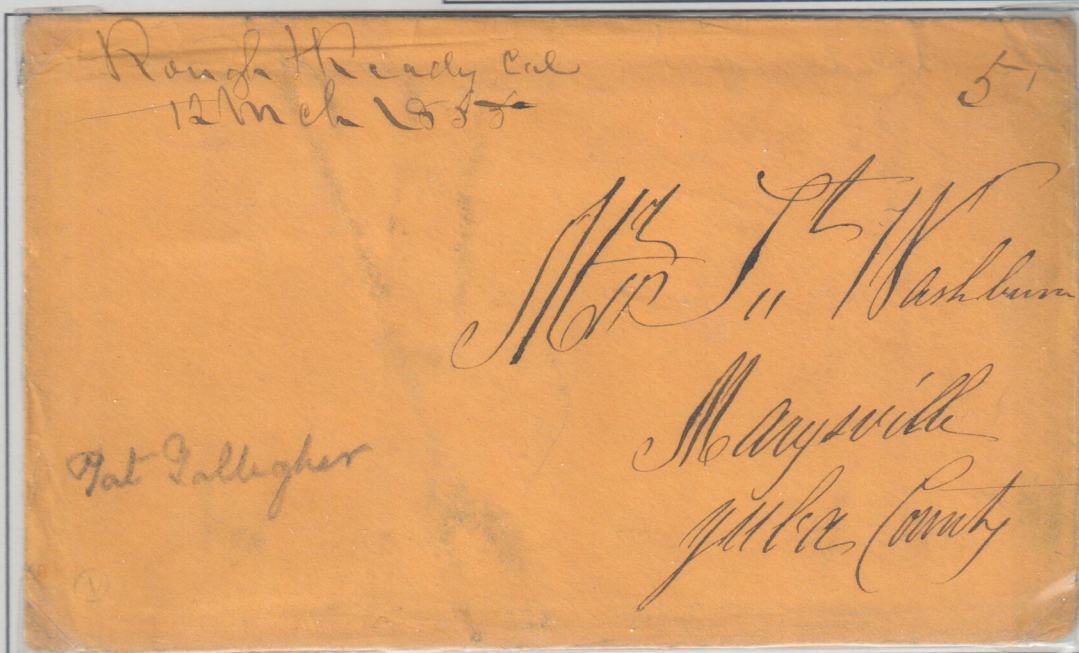 Rough & Ready Cal
12 Mch 1855
5
Washburn
Marysville
Yuba County
Pat Gallegher